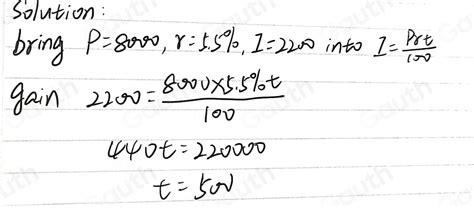 Solution:
bring P=8000, r=5.5%, I=2200 into I=Prt/100
gain 2200=8000×5.5%t/100
440t=220000
t=500